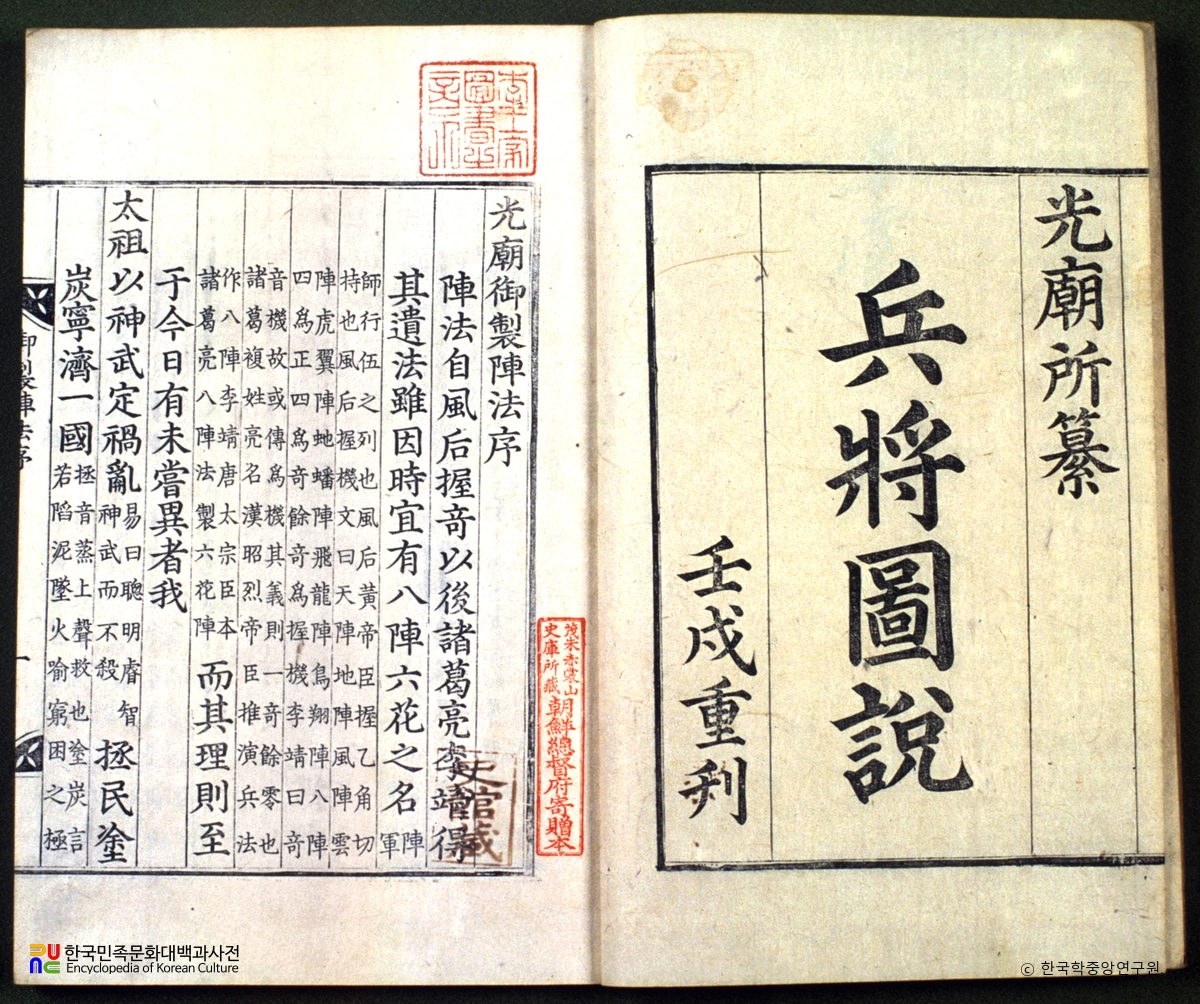 光廟所纂
兵將圖說
壬戌重刋
茂朱赤裳山
史庫所藏
朝鮮總督府寄贈本
光廟御製陣法序
陣法自風后握奇以後諸葛亮李靖得
其遺法雖因時宜有八陣六花之名陣軍
師行伍之列也風后黃帝臣握乙角切
持也風后握機文曰天陣地陣風陣雲
陣虎翼陣虵蟠陣飛龍陣鳥翔陣八陣
四爲正四爲奇餘奇爲握機李靖曰奇
音機故或傳爲機其義則一奇餘零也
諸葛複姓亮名漢昭烈帝臣推演兵法
作八陣李靖唐太宗臣本
諸葛亮八陣法製六花陣
而其理則至
于今日有未嘗異者我
太祖以神武定禍亂
易曰聰明睿智
神武而不殺
拯民塗
炭寧濟一國
拯音蒸上聲救也塗炭言
若陷泥墜火喻窮困之極
御製陣法序
一
史館藏
한국민족문화대백과사전
Encyclopedia of Korean Culture
ⓒ 한국학중앙연구원